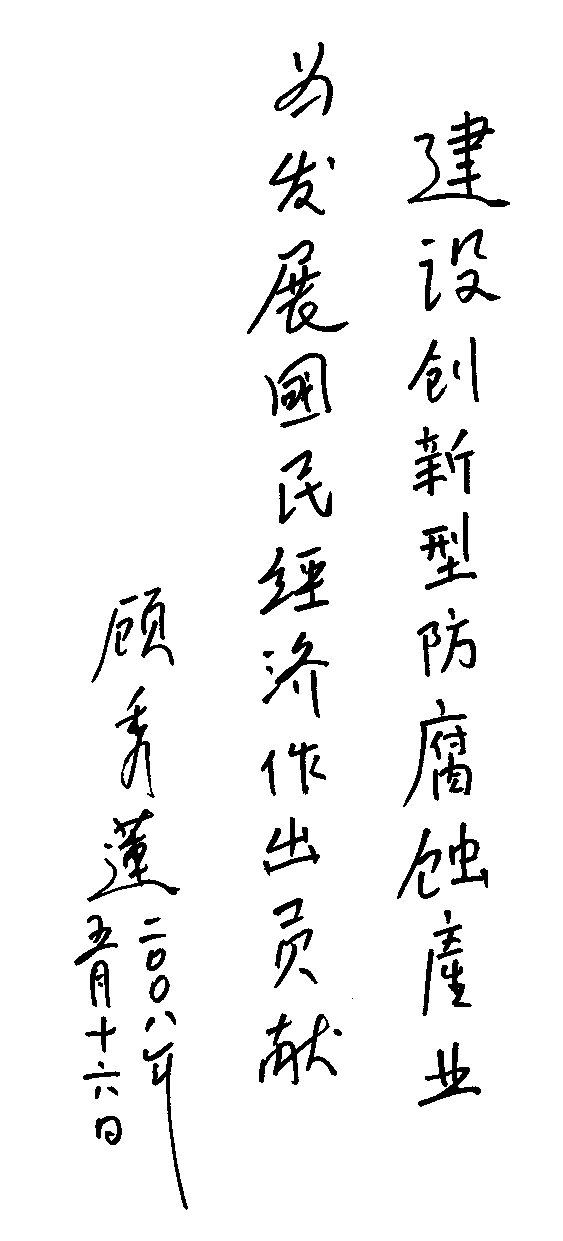 建设创新型防腐蚀產业
为发展國民經济作出贡献
顾秀蓮
二〇〇八年
五月十六日